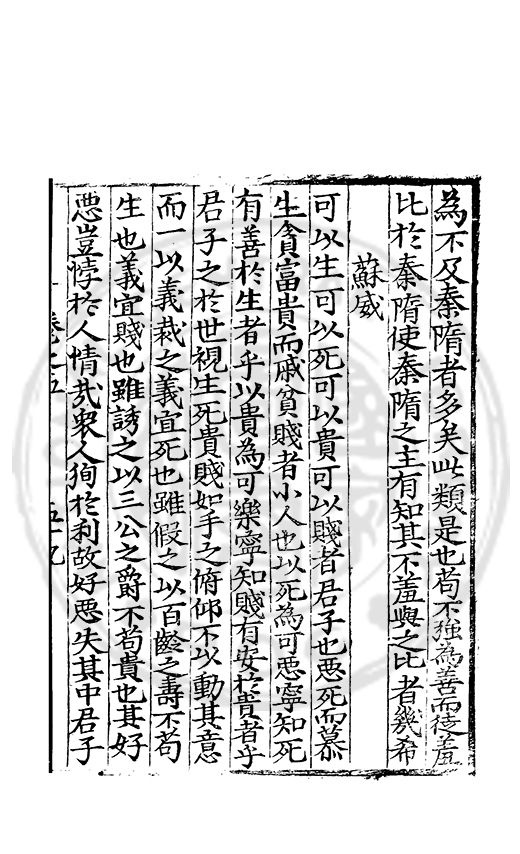 為不及秦隋者多矣此類是也苟不強為善而徒羞
比於秦隋使秦隋之主有知其不羞與之比者幾希
蘇威
可以生可以死可以貴可以賤者君子也惡死而慕
生貪富貴而戚貧賤者小人也以死為可惡寧知死
有善於生者乎以貴為可樂寧知賤有安於貴者乎
君子之於世視生死貴賤如手之俯仰不以動其意
而一以義裁之義宜死也雖假之以百齡之壽不苟
生也義宜賤也雖誘之以三公之爵不苟貴也其好
惡豈悖於人情哉衆人狥於利故好惡失其中君子
卷之五 五十九